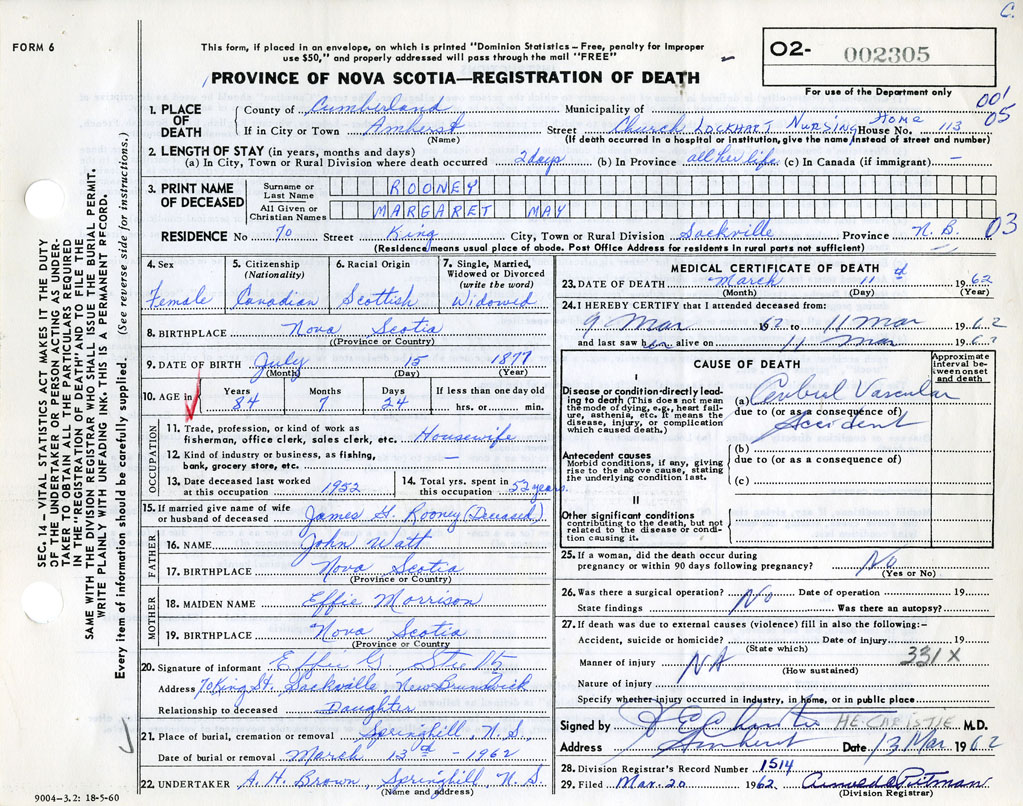 C.
FORM 6
This form, if placed in an envelope, on which is printed "Dominion Statistics – Free, penalty for improper
use $50," and properly addressed will pass through the mail "FREE"
O2- 002305
For use of the Department only
PROVINCE OF NOVA SCOTIA—REGISTRATION OF DEATH
001
05
1. PLACE OF DEATH
County of Cumberland Municipality of
If in City or Town Amherst Street Church Lockhart Nursing Home House No. 113
(Name) (If death occurred in a hospital or institution, give the name instead of street and number)
2. LENGTH OF STAY (in years, months and days)
(a) In City, Town or Rural Division where death occurred 2 days (b) In Province all her life (c) In Canada (if immigrant) —
3. PRINT NAME OF DECEASED
Surname or Last Name ROONEY
All Given or Christian Names MARGARET MAY
RESIDENCE No 70 Street King City, Town or Rural Division Sackville Province N.B. 03
(Residence means usual place of abode. Post Office Address for residents in rural parts not sufficient)
4. Sex
Female
5. Citizenship
(Nationality)
Canadian
6. Racial Origin
Scottish
7. Single, Married,
Widowed or Divorced
(write the word)
Widowed
8. BIRTHPLACE Nova Scotia
(Province or Country)
9. DATE OF BIRTH July 15 1877
(Month) (Day) (Year)
10. AGE in Years Months Days If less than one day old
84 7 24 hrs. or min.
OCCUPATION
11. Trade, profession, or kind of work as
fisherman, office clerk, sales clerk, etc. Housewife
12. Kind of industry or business, as fishing,
bank, grocery store, etc. —
13. Date deceased last worked
at this occupation 1952
14. Total yrs. spent in
this occupation 52 years
15. If married give name of wife
or husband of deceased James G. Rooney (Deceased)
FATHER
16. NAME John Watt
17. BIRTHPLACE Nova Scotia
(Province or Country)
MOTHER
18. MAIDEN NAME Effie Morrison
19. BIRTHPLACE Nova Scotia
(Province or Country)
20. Signature of informant Effie G.
Address 70 King St. Sackville, New Brunswick
Relationship to deceased Daughter
21. Place of burial, cremation or removal Springhill, N.S.
Date of burial or removal March 13 - 1962
22. UNDERTAKER A. H. Brown, Springhill, N.S.
(Name and address)
9004–3.2: 18-5-60
SEC. 14 – VITAL STATISTICS ACT MAKES IT THE DUTY
OF THE UNDERTAKER OR PERSON ACTING AS UNDER-
TAKER TO OBTAIN ALL THE PARTICULARS REQUIRED
IN THE "REGISTRATION OF DEATH" AND TO FILE THE
SAME WITH THE DIVISION REGISTRAR WHO SHALL ISSUE THE BURIAL PERMIT.
WRITE PLAINLY WITH UNFADING INK. THIS IS A PERMANENT RECORD.
Every item of information should be carefully supplied. (See reverse side for instructions.)
MEDICAL CERTIFICATE OF DEATH
23. DATE OF DEATH March 11 1962
(Month) (Day) (Year)
24. I HEREBY CERTIFY that I attended deceased from:
9 Mar 1962 to 11 Mar 1962
and last saw her alive on 11 Mar 1962
CAUSE OF DEATH
Approximate
interval be-
tween onset
and death
I
Disease or condition directly lead-
ing to death (This does not mean
the mode of dying, e.g., heart fail-
ure, asthenia, etc. It means the
disease, injury, or complication
which caused death.)
(a) Cerebral Vascular
due to (or as a consequence of)
Accident
Antecedent causes
Morbid conditions, if any, giving
rise to the above cause, stating
the underlying condition last.
(b)
due to (or as a consequence of)
(c)
II
Other significant conditions
contributing to the death, but not
related to the disease or condi-
tion causing it.
25. If a woman, did the death occur during
pregnancy or within 90 days following pregnancy? No
(Yes or No)
26. Was there a surgical operation? No Date of operation 19
State findings Was there an autopsy?
27. If death was due to external causes (violence) fill in also the following:–
Accident, suicide or homicide? Date of injury 19
(State which) 331X
Manner of injury NA
(How sustained)
Nature of injury
Specify whether injury occurred in industry, in home, or in public place
Signed by H E Christie HE. CHRISTIE M.D.
Address Amherst Date 13 Mar 1962
28. Division Registrar's Record Number 1514
29. Filed Mar. 20 1962 Pitman
(Division Registrar)